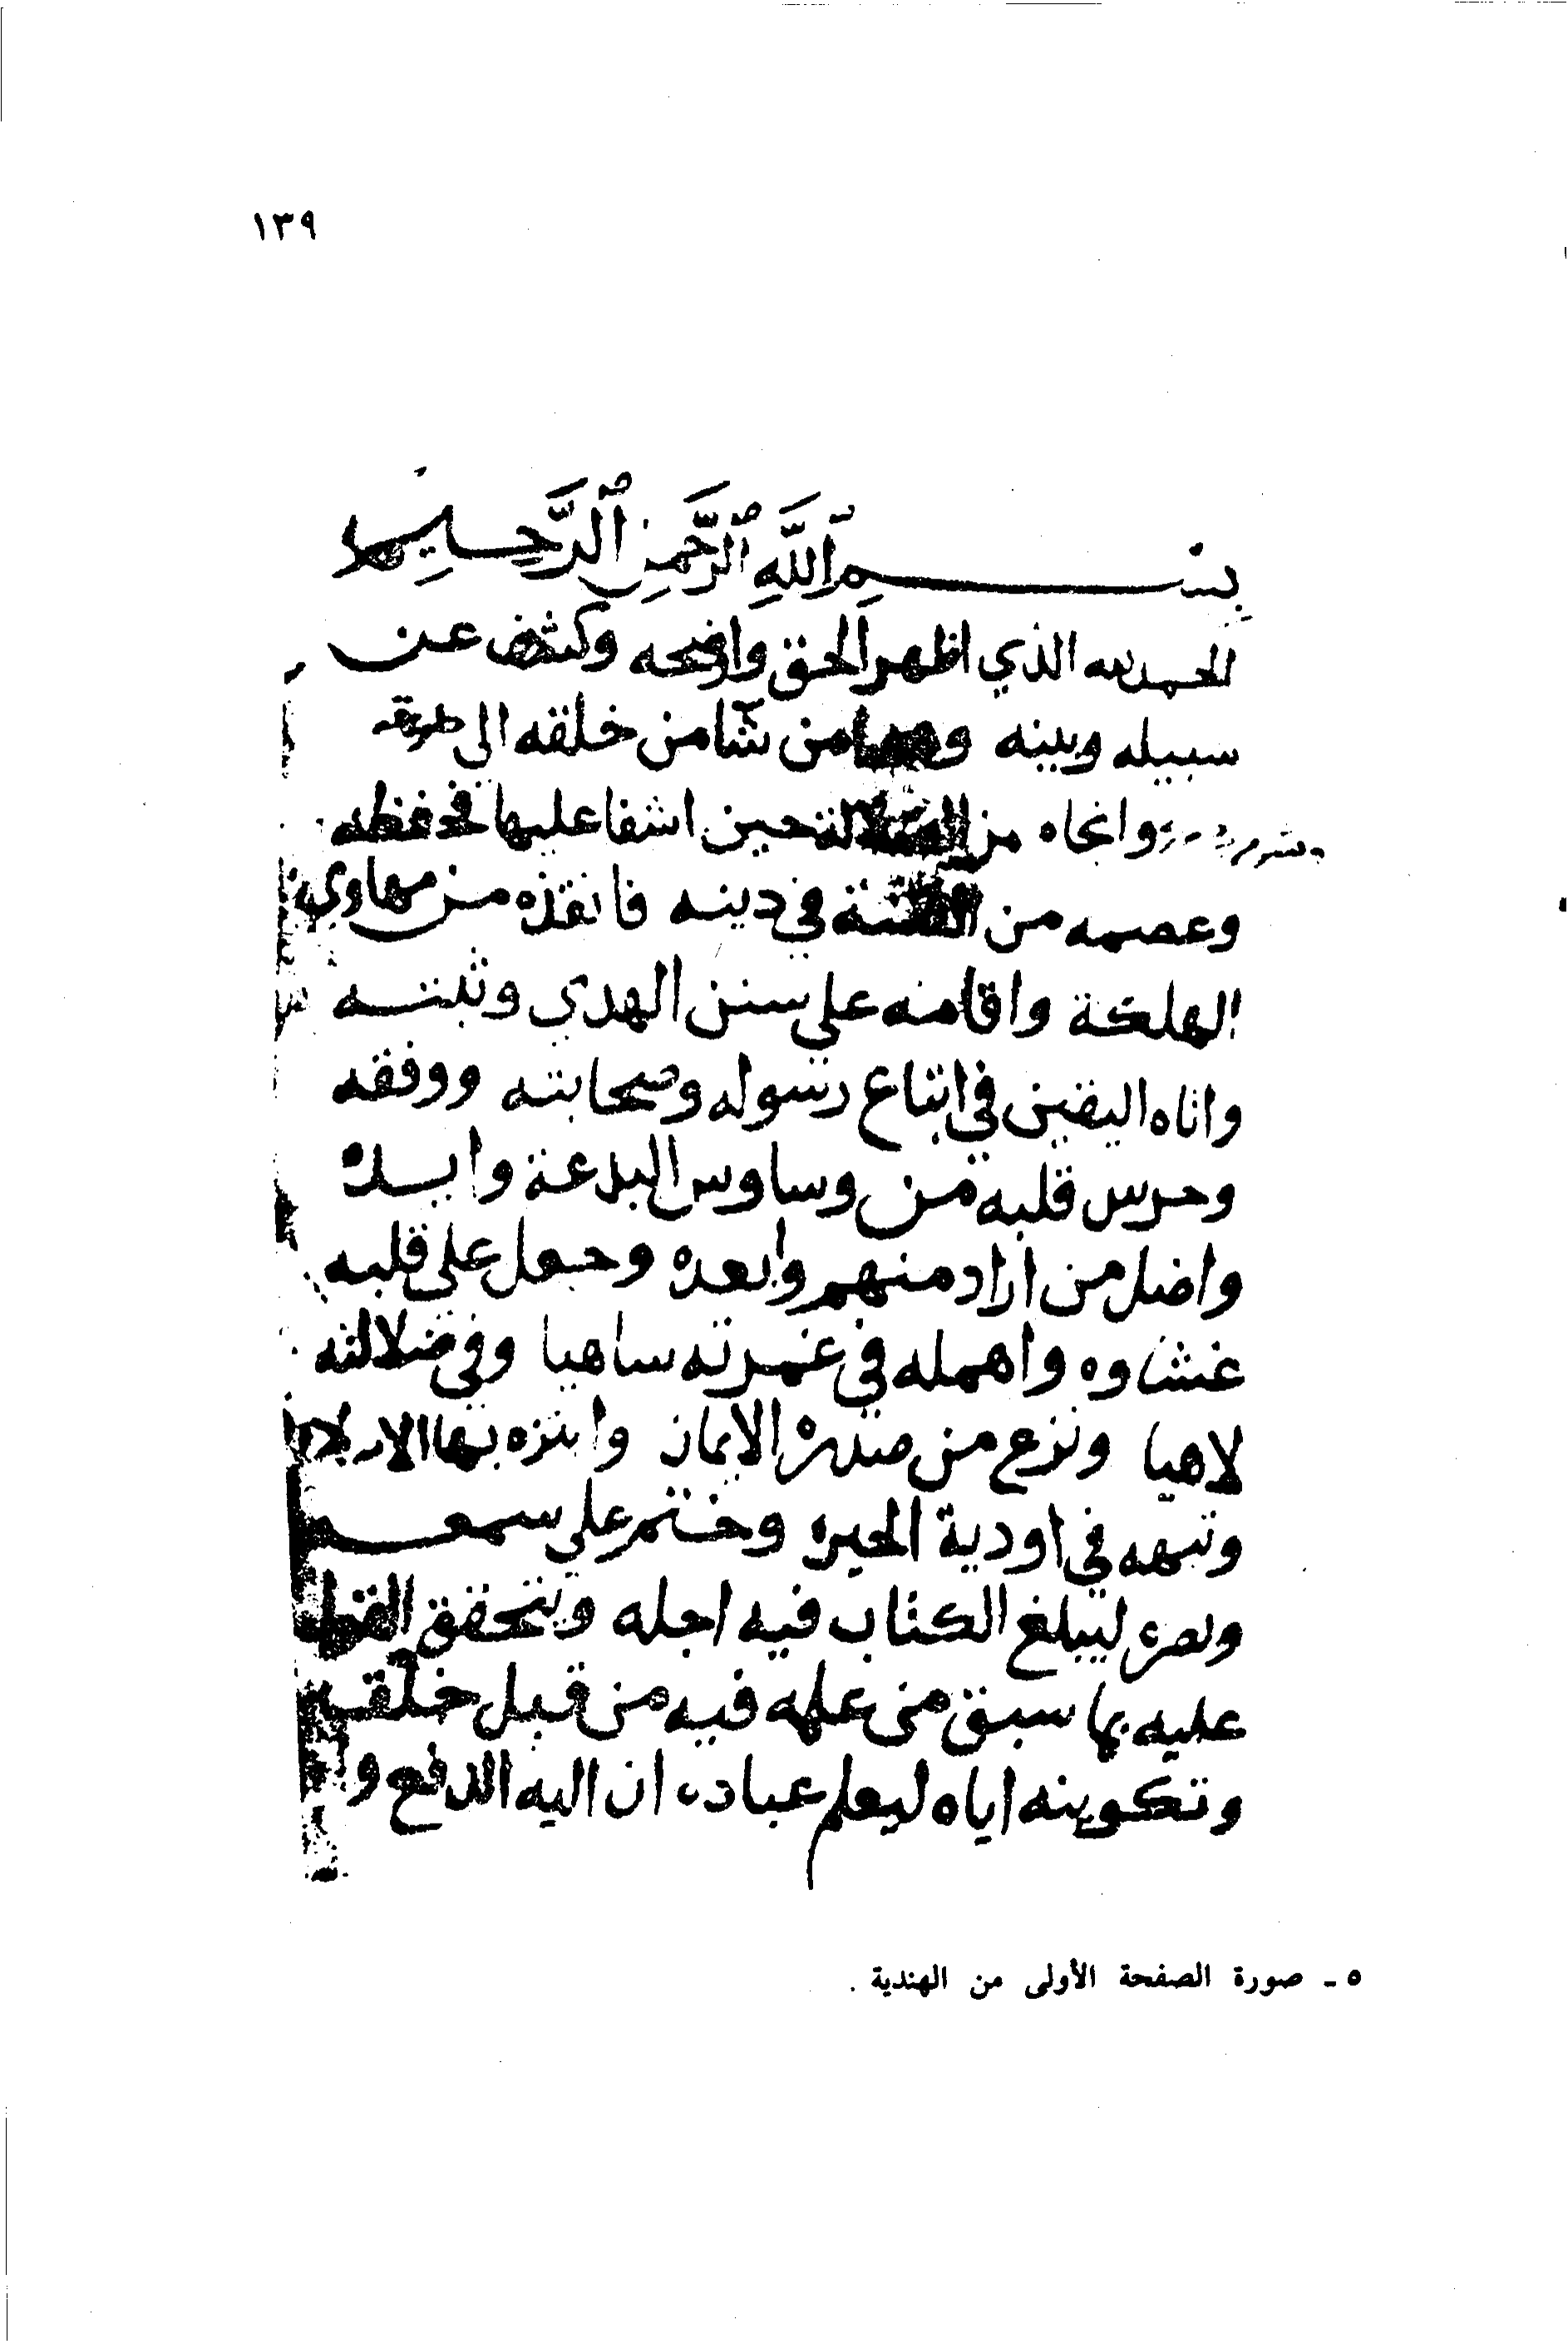 ١٣٩
بِسْمِ ٱللَّهِ ٱلرَّحْمَنِ ٱلرَّحِيمِ
الحمد لله الذي اظهر الحق واوضحه وكشف عن
سبيله وبينه وهدا من شآ من خلقه الى طريقه
وانجاه من الضلالة حين اشفا عليها فحفظه
وعصمه من الفتنة في دينه فانقذه من مهاوي
الهلكة واقامه على سنن الهدي وثبته
واتاه اليقين في اتباع رسوله وصحابته ووفقه
وحرس قلبه من وساوس البدعة وايده
واضل من اراد منهم وابعده وجعل على قلبه
غشاوه واهمله في غمرته ساهيا وفي ضلالته
لاهيا ونزع من صدره الايمان وابتزه
وتيهه في اودية الحيره وختم على سمعه
وبصره ليبلغ الكتاب فيه اجله ويتحقق القول
عليه بما سبق من علمه فيه من قبل خلقه
وتكوينه اياه ليعلم عباده ان اليه الدفع و
٥ ـ صورة الصفحة الأولى من الهندية .